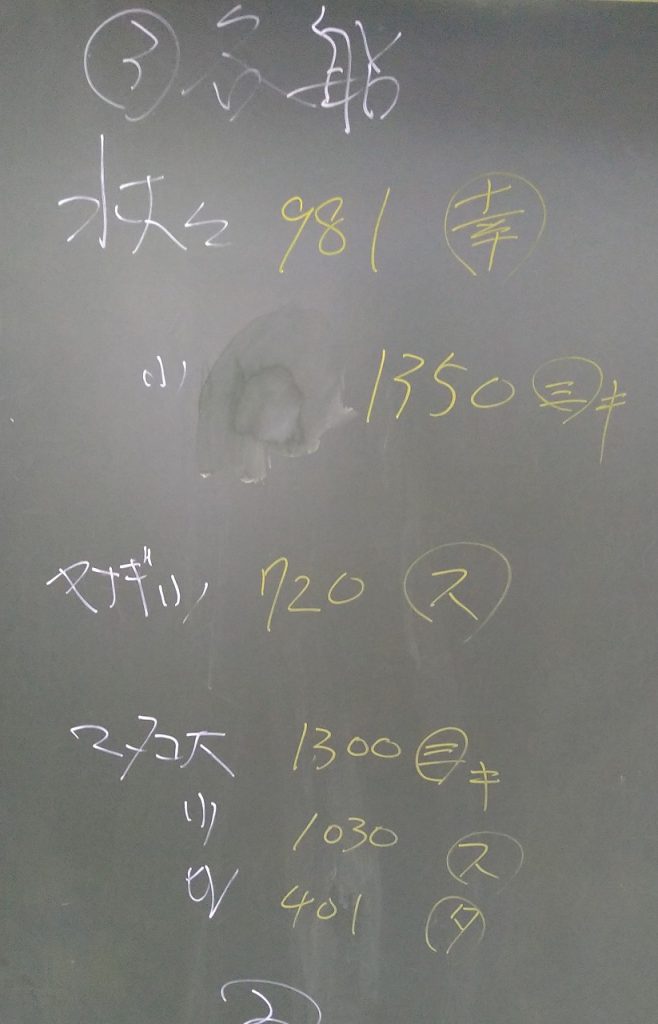 ③ 各船
水大 981 幸
小 1350 三キ
ヤナギ小 720 ス
マダコ大 1300 三キ
小 1030 ス
401 タ
②